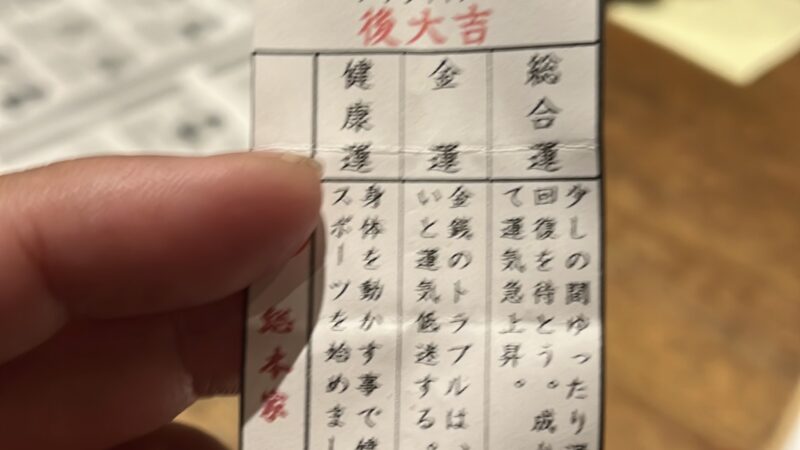 後大吉
総合運
少しの間ゆったり
回復を待とう。
て運気急上昇。
金運
金銭のトラブルは、
いと運気低迷する。
健康運
身体を動かす事で健
スポーツを始めまし
総本家